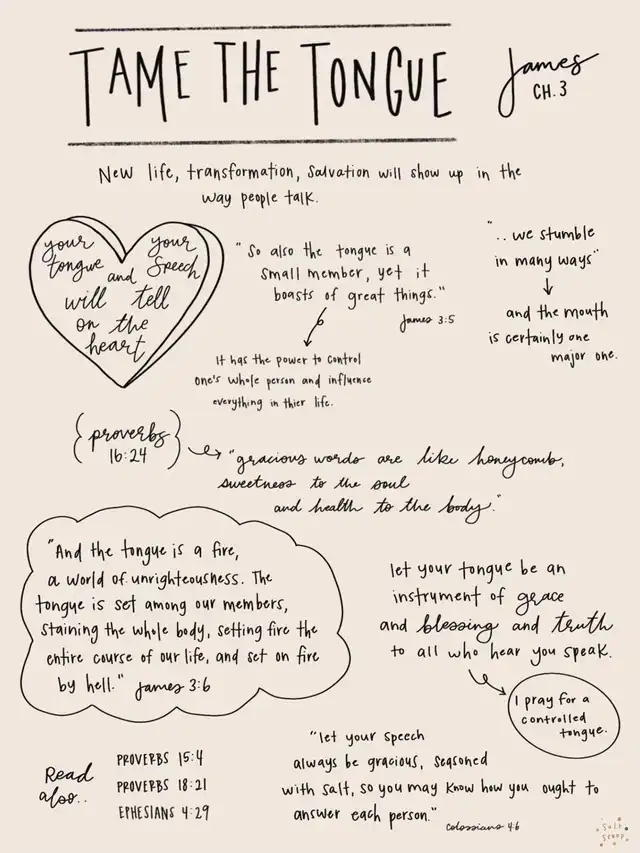 TAME THE TONGUE
James
CH.3
New life, transformation, salvation will show up in the
way people talk.
your your
tongue and speech
will tell
on the
heart
"So also the tongue is a
small member, yet it
boasts of great things."
James 3:5
It has the power to control
one's whole person and influence
everything in thier life.
"..we stumble
in many ways"
and the mouth
is certainly one
major one.
proverbs
16:24
"gracious words are like honeycomb,
sweetness to the soul
and health to the body."
"And the tongue is a fire,
a world of unrighteousness. The
tongue is set among our members,
staining the whole body, setting fire the
entire course of our life, and set on fire
by hell." James 3:6
let your tongue be an
instrument of grace
and blessing and truth
to all who hear you speak.
I pray for a
controlled
tongue.
Read
also..
PROVERBS 15:4
PROVERBS 18:21
EPHESIANS 4:29
"let your speech
always be gracious, seasoned
with salt, so you may know how you ought to
answer each person."
Colossians 4:6
Salt
Scoop